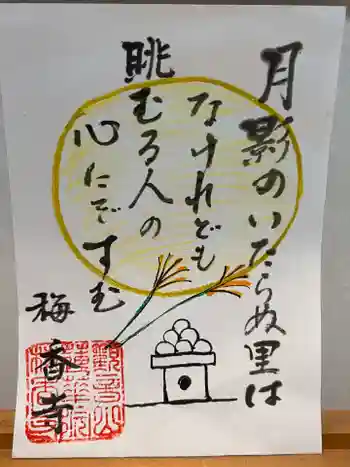 月影のいたらぬ里は
なけれども
眺むる人の
心にぞすむ
梅香寺